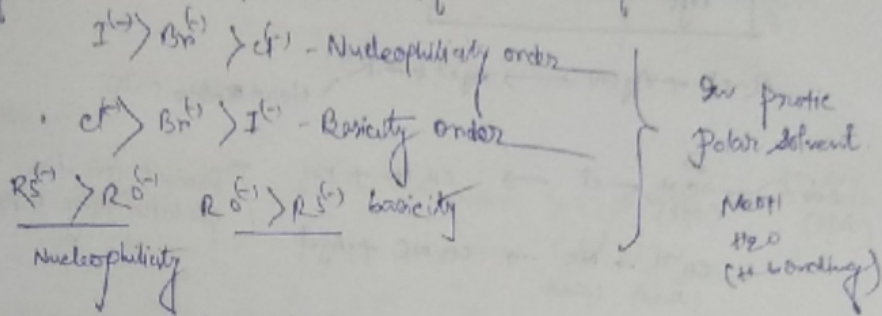 I⁽⁻⁾ > Br⁽⁻⁾ > Cl⁽⁻⁾ - Nucleophilicity order
Cl⁽⁻⁾ > Br⁽⁻⁾ > I⁽⁻⁾ - Basicity order
RS⁽⁻⁾ > RO⁽⁻⁾ RO⁽⁻⁾ > RS⁽⁻⁾ basicity
Nucleophilicity
In protic
Polar solvent.
MeOH
H₂O
(H bonding)